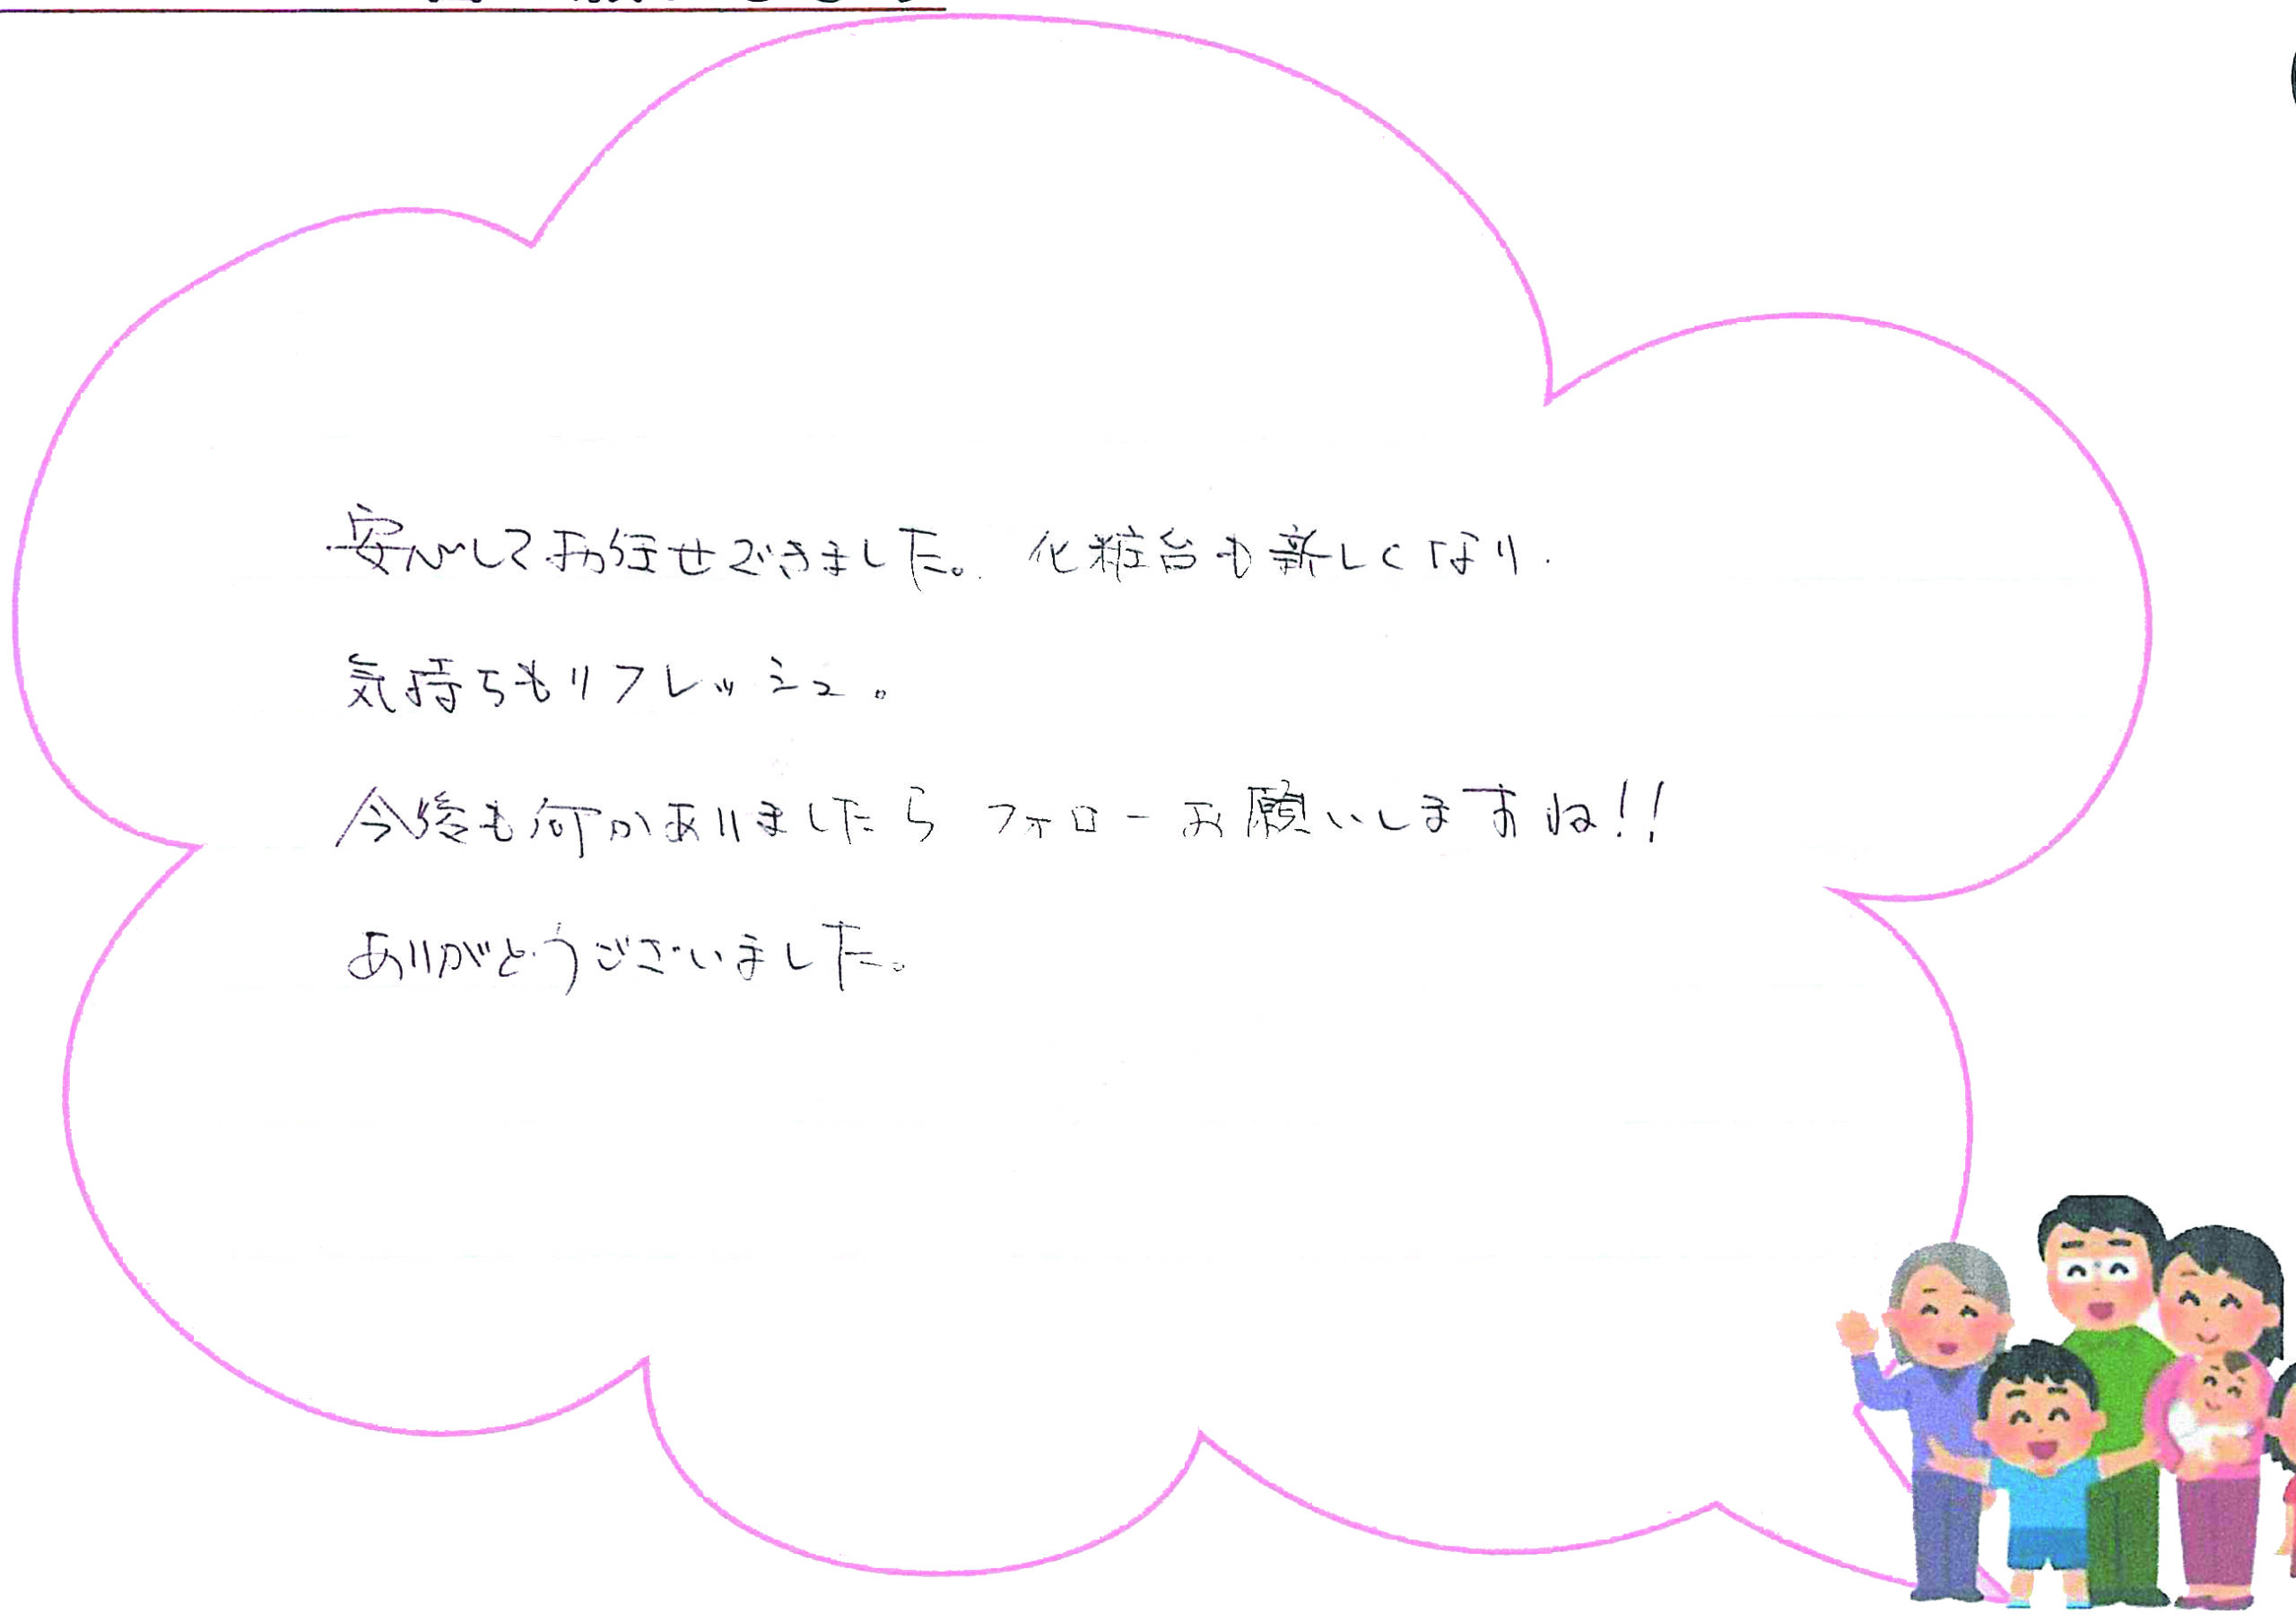 安心してお任せできました。化粧台も新しくなり、
気持ちもリフレッシュ。
今後も何かありましたら フォローお願いしますね!!
ありがとうございました。